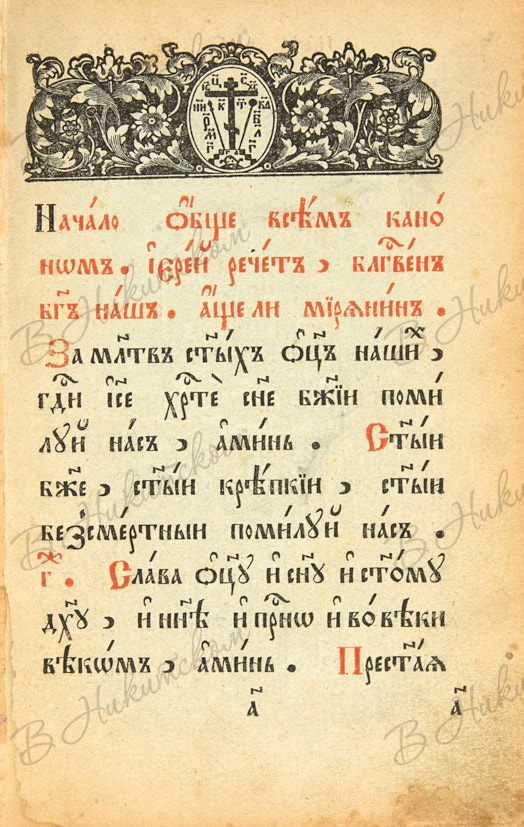 Нача́ло ѻ҆́бщее всѣ́мъ кано́
нѡмъ. і҆ере́й рече́тъ, блгⷭ҇ве́нъ
бг҃ъ на́шъ. а҆́ще ли мїрѧни́нъ.
За мл҃твъ ст҃ы́хъ ѻ҆ц҃ъ на́шиⷯ,
гдⷭ҇и і҆с҃е хрⷭ҇тѐ сн҃е бж҃їи поми́
лꙋй на́съ, а҆ми́нь. Ст҃ы́и
бж҃е, ст҃ы́и крѣ́пкїи, ст҃ы́и
безсме́ртныи поми́лꙋй на́съ.
г҃. Сла́ва ѻ҆ц҃ꙋ̀ и҆ сн҃ꙋ и҆ ст҃о́мꙋ
дх҃ꙋ, и҆ нн҃ѣ и҆ прⷭ҇нѡ и҆ во́ вѣки
вѣкѡ́мъ, а҆ми́нь. Прест҃а́ѧ
а҃ а҃
В Никитском